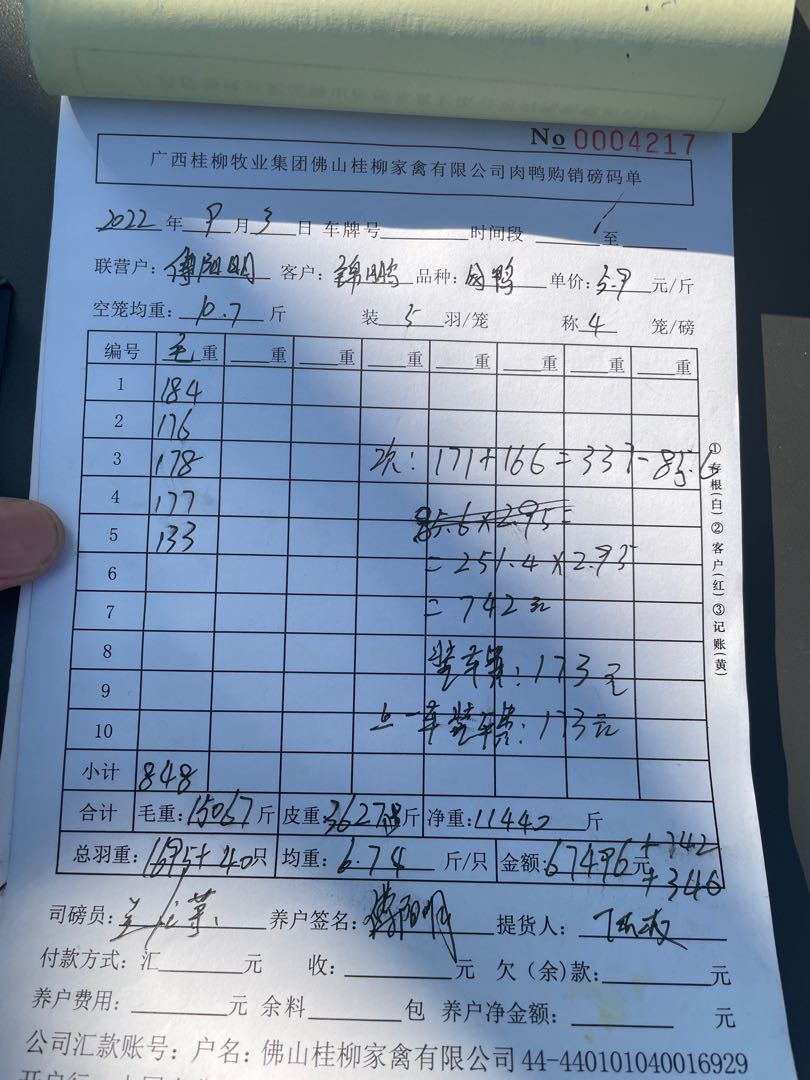 No 0004217
广西桂柳牧业集团佛山桂柳家禽有限公司肉鸭购销磅码单
2022 年 9 月 3 日 车牌号 时间段 至
联营户: 傅阳明 客户: 锦鹏 品种: 鸭 单价: 5.9 元/斤
空笼均重: 10.7 斤 装 5 羽/笼 称 4 笼/磅
编号 毛重 重 重 重 重 重 重 重
1 184
2 176
3 178 次: 171+166=337-85.6
4 177 85.6×2.95=
5 133 =251.4×2.95
6
7 =742元
8 装车费: 173元
9
10 上一车装车费: 173元
小计 848
合计 毛重: 15067 斤 皮重: 3627 斤 净重: 11440 斤
总羽重: 1695+40 只 均重: 6.74 斤/只 金额: 67496 元 +742
+346
司磅员: 养户签名: 傅阳明 提货人:
付款方式: 汇 元 收: 元 欠(余)款: 元
养户费用: 元 余料 包 养户净金额: 元
公司汇款账号: 户名: 佛山桂柳家禽有限公司 44-440101040016929
①存根(白)②客户(红)③记账(黄)